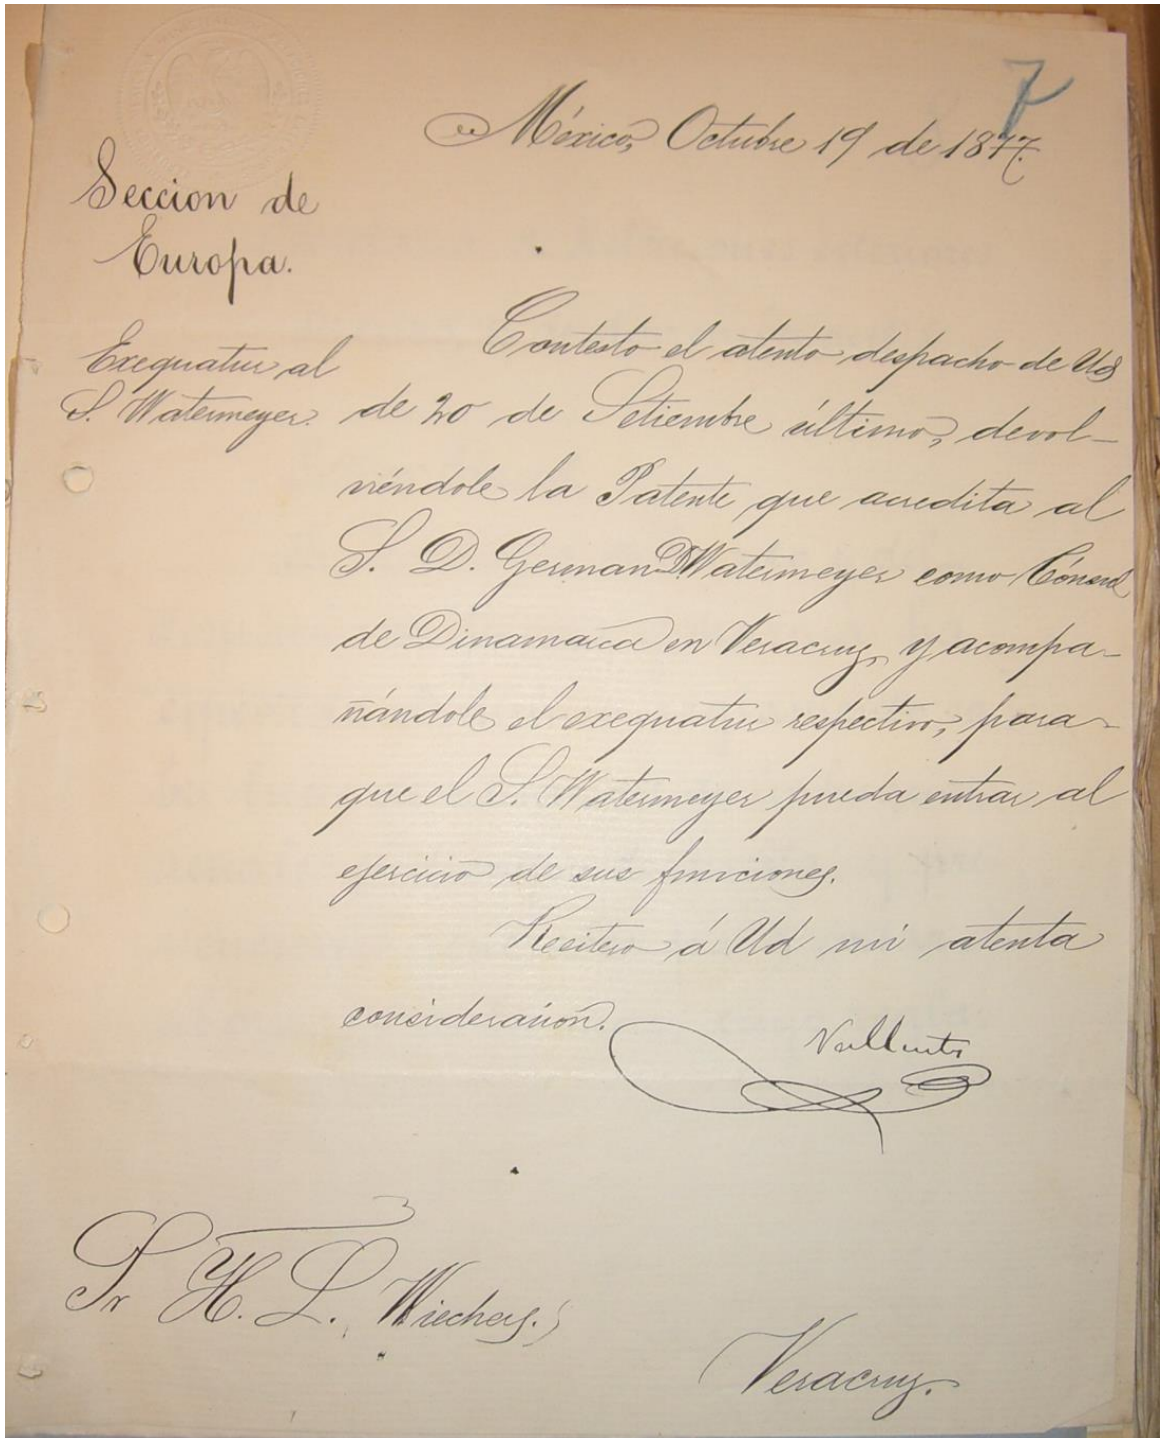 7
México, Octubre 19 de 1877.
Seccion de
Europa.
Exequatur al
S. Watermeyer.
Contesto el atento despacho de Ud
de 20 de Setiembre último, devol-
viéndole la Patente que acredita al
S. D. German D Watermeyer como Cónsul
de Dinamarca en Veracruz, y acompa-
ñándole el exequatur respectivo, para
que el S. Watermeyer pueda entrar al
ejercicio de sus funciones.
Reitero á Ud mi atenta
consideracion.
Vallarta
Sr H. L. Wiechers.
Veracruz.